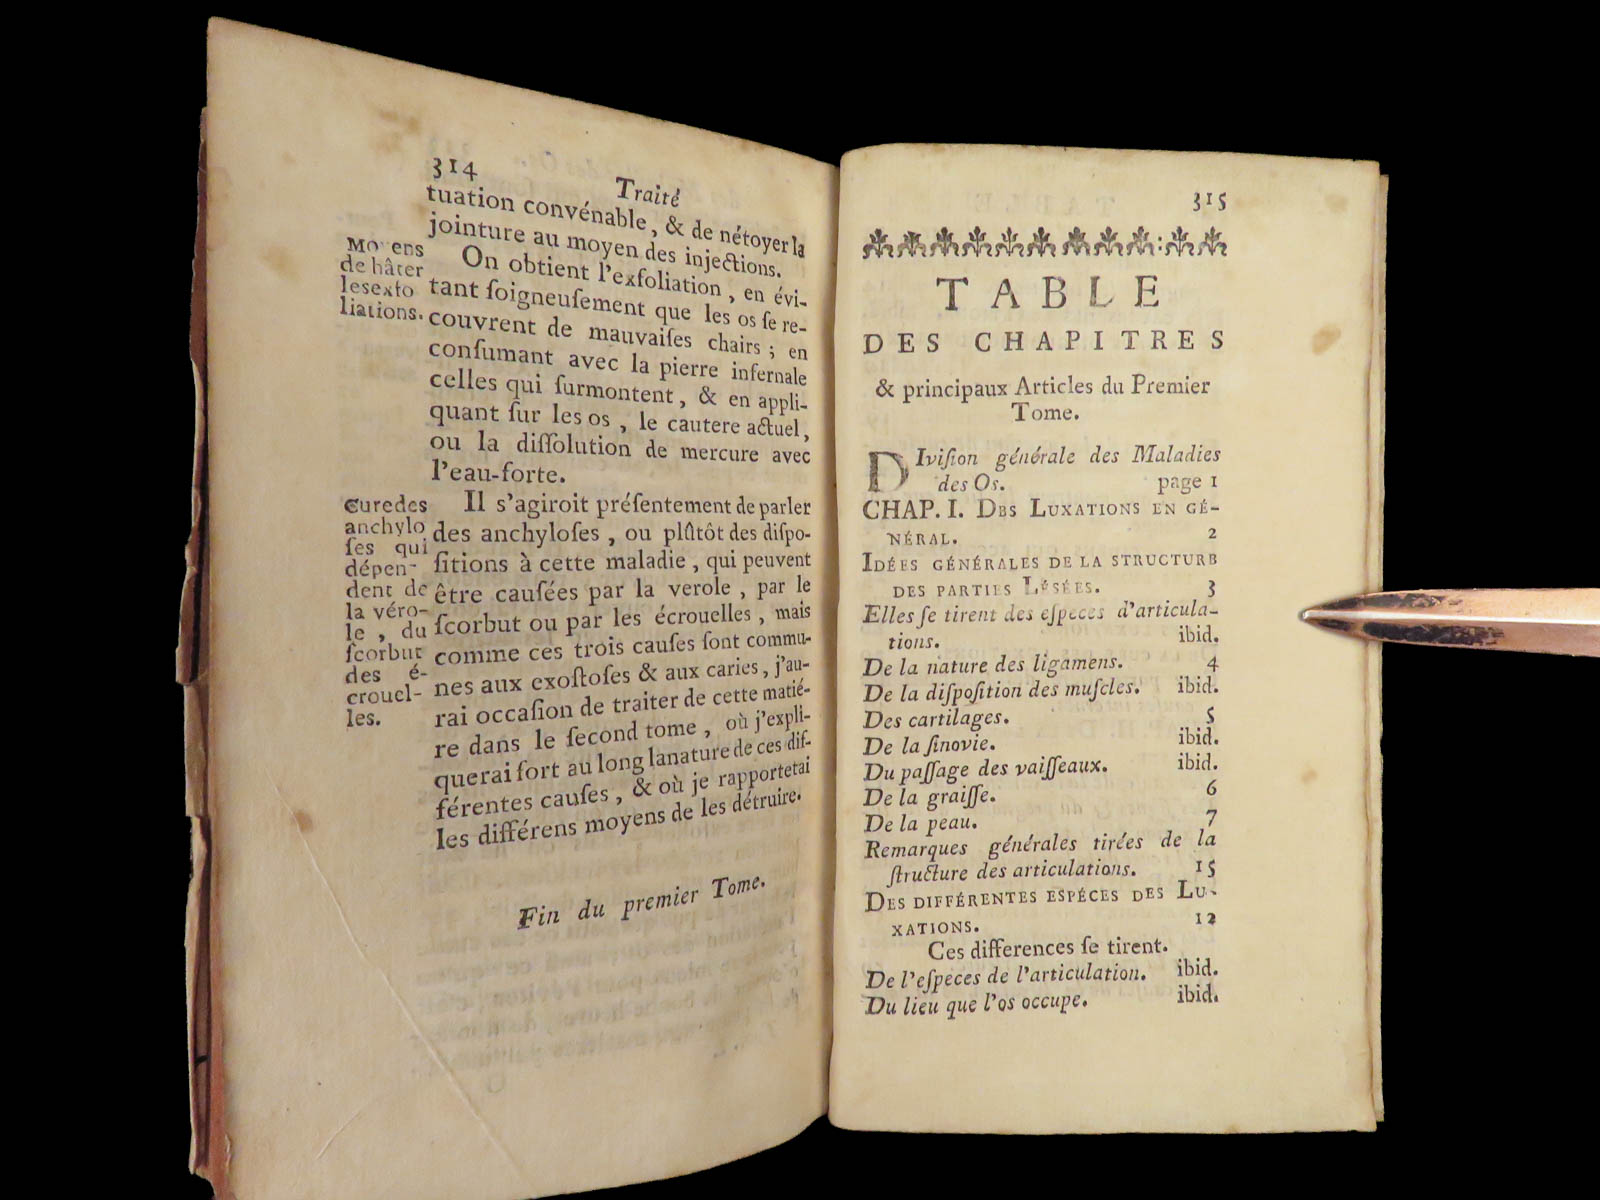 314
Traité
tuation convénable, & de nétoyer la
jointure au moyen des injections.
Moyens
de hâter
les exfo
liations.
On obtient l'exfoliation, en évi-
tant ſoigneuſement que les os ſe re-
couvrent de mauvaiſes chairs; en
conſumant avec la pierre infernale
celles qui ſurmontent, & en appli-
quant ſur les os, le cautere actuel,
ou la diſſolution de mercure avec
l'eau-forte.
Cure des
anchylo
ſes qui
dépen-
dent de
la véro-
le, du
ſcorbut
des é-
crouel-
les.
Il s'agiroit préſentement de parler
des anchyloſes, ou plûtôt des diſpo-
ſitions à cette maladie, qui peuvent
être cauſées par la verole, par le
ſcorbut ou par les écrouelles, mais
comme ces trois cauſes ſont commu-
nes aux exoſtoſes & aux caries, j'au-
rai occaſion de traiter de cette matié-
re dans le ſecond tome, où j'expli-
querai fort au long la nature de ces dif-
férentes cauſes, & où je rapportetai
les différens moyens de les détruire.
Fin du premier Tome.
315
TABLE
DES CHAPITRES
& principaux Articles du Premier
Tome.
DIviſion générale des Maladies
des Os. page 1
CHAP. I. DES LUXATIONS EN GÉ-
NÉRAL. 2
IDÉES GÉNÉRALES DE LA STRUCTURE
DES PARTIES LÉSÉES. 3
Elles ſe tirent des eſpeces d'articula-
tions. ibid.
De la nature des ligamens. 4
De la diſpoſition des muſcles. ibid.
Des cartilages. 5
De la ſinovie. ibid.
Du paſſage des vaiſſeaux. ibid.
De la graiſſe. 6
De la peau. 7
Remarques générales tirées de la
ſtructure des articulations. 15
DES DIFFÉRENTES ESPÉCES DES LU-
XATIONS. 12
Ces differences ſe tirent.
De l'eſpeces de l'articulation. ibid.
Du lieu que l'os occupe. ibid.